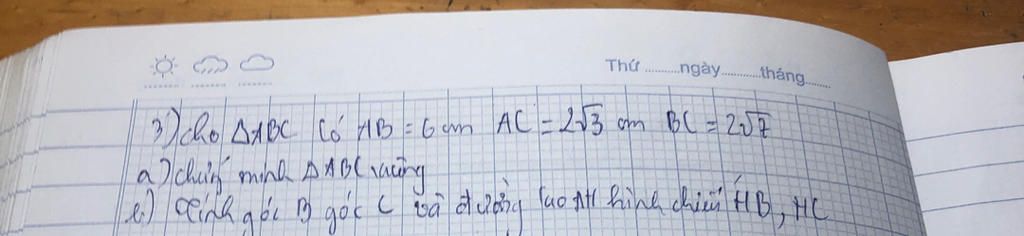 Thứ ..........ngày..........tháng.......
3) cho ΔABC Có AB = 6 cm AC = 2√3 cm BC = 2√7
a) chứng minh ΔABC vuông
b) tính góc B góc C và đường cao AH hình chiếu HB, HC